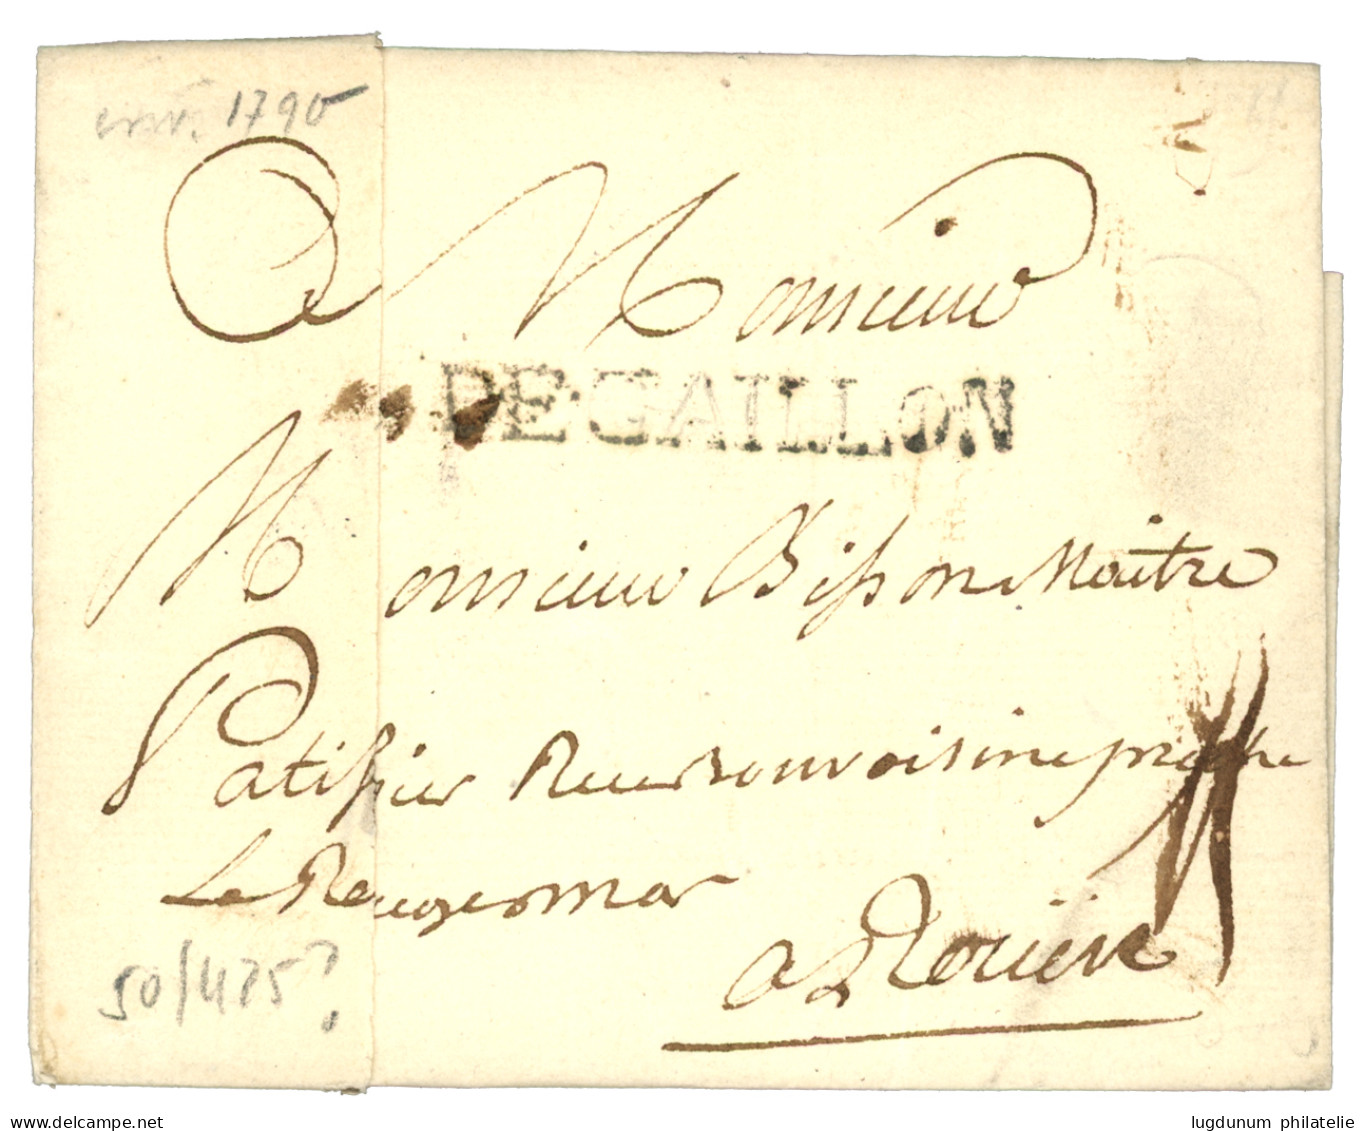 env. 1790
Monsieur
DE GAILLON
Monsieur Bisson Maitre
Patissier Rue Bouvoisine proche
Le Rougemar
a Rouën
50/475?
www.delcampe.net
lugdunum philatelie